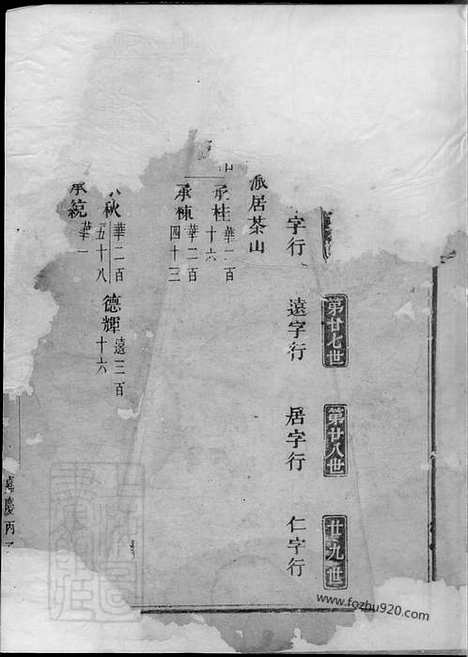 第廿七世
第廿八世
廿九世
字行
遠字行
居字行
仁字行
派居茶山
承桂 華一百十六
承棟 華二百四十三
秋 華二百五十八
德輝 遠三百十六
承統 華一
嘉慶丙
www.fozhu920.com